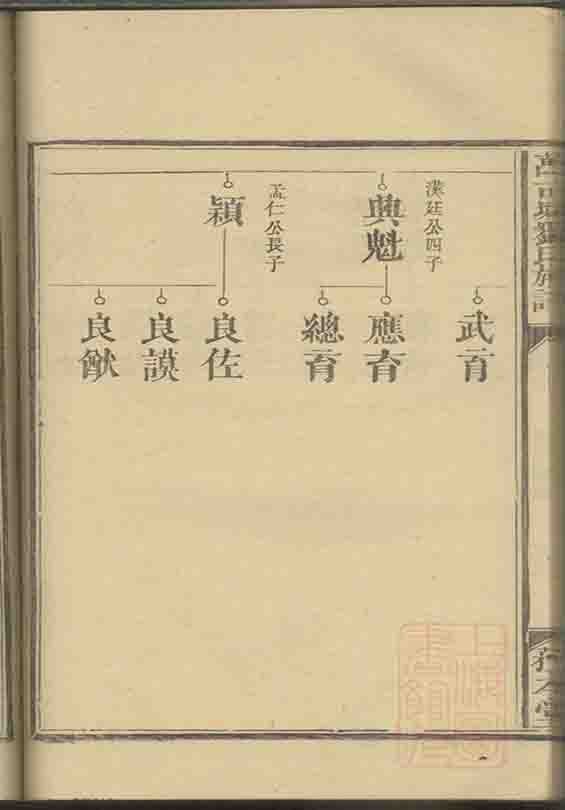 漢廷公四子
典魁
孟仁公長子
穎
武育
應育
總育
良佐
良謨
良猷